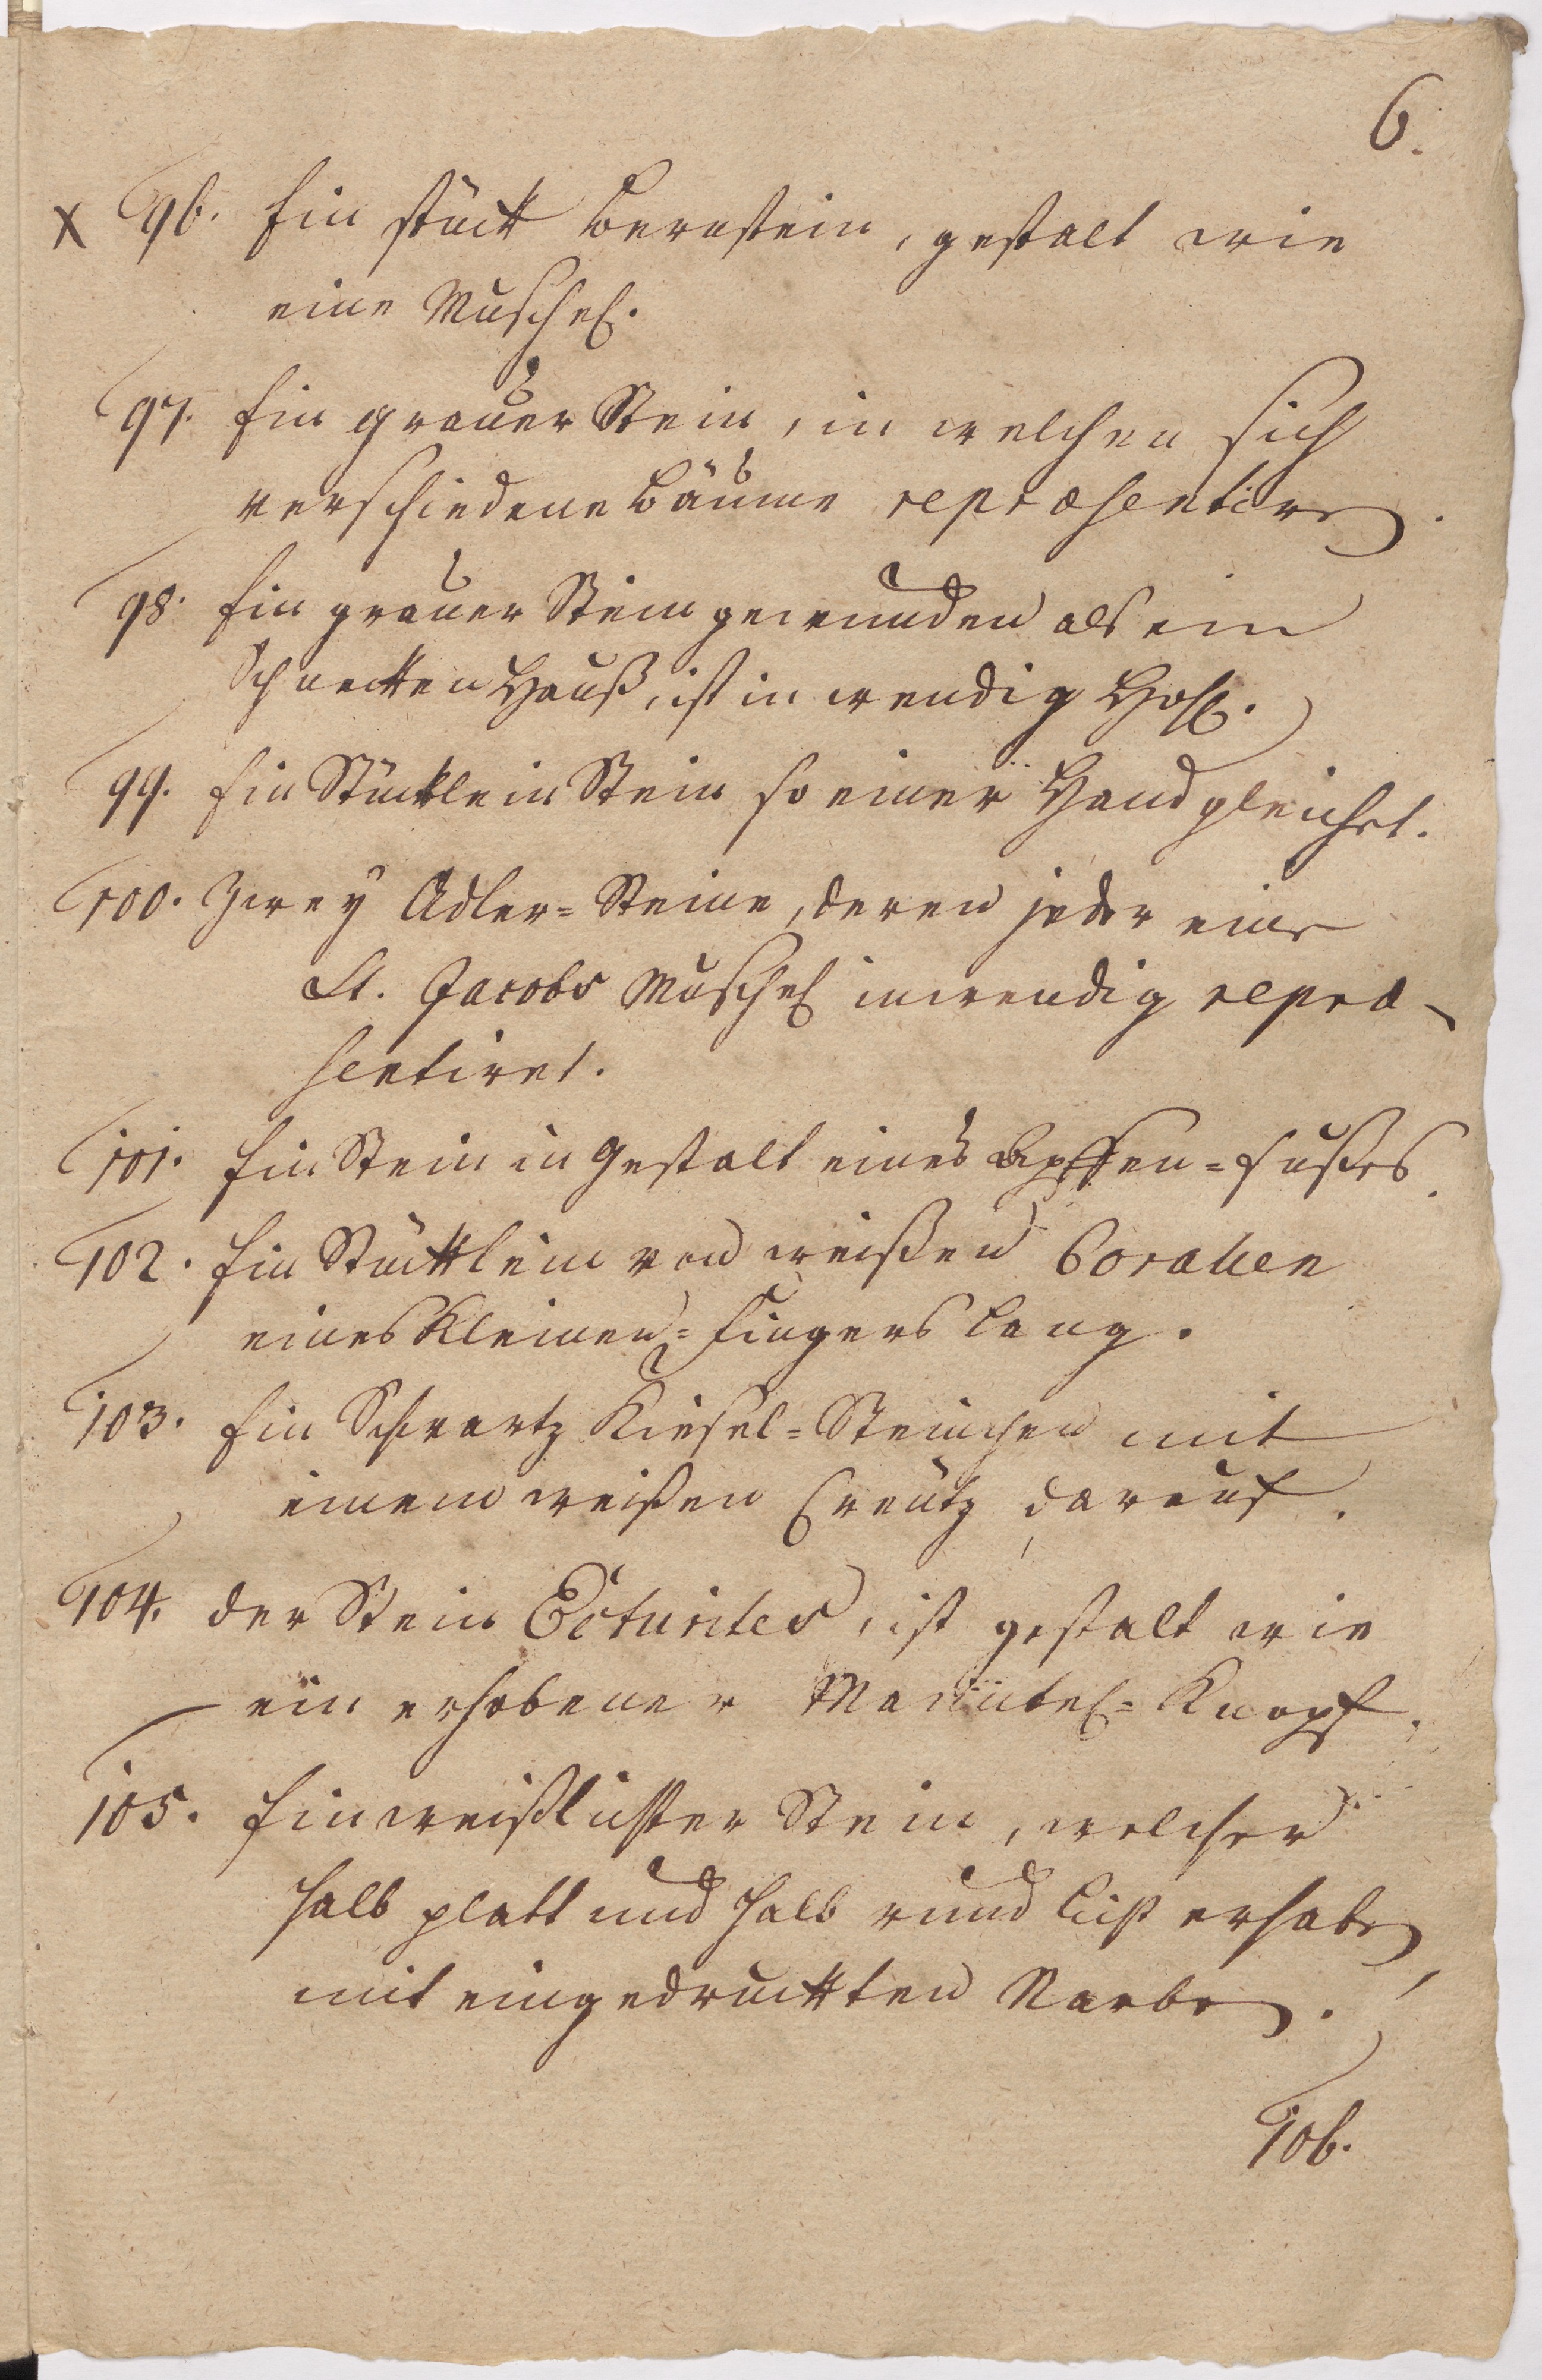 6.
x 96. Ein stück Bernstein, gestalt wie
eine Muschel.
97. Ein grauer Stein, in welchen sich
verschiedene Bäume repræsentiren.
98. Ein grauer Stein gewunden als ein
Schnecken Hauß, ist inwendig Hohl.
99. Ein Stücklein Stein so einer Hand gleichet.
100. Zwey Adler=Steine, deren jeder eine
St. Jacobs Muschel inwendig repræ-
sentiret.
101. Ein Stein in gestalt eines Affen=Fußes.
102. Ein Stücklein von weißen Corallen
eines Kleinen=Fingers lang.
103. Ein Schwartz Kiesel=Steinchen mit
einem weißen Creutz darauf.
104. der Stein, ist gestalt wie
ein erhobener Mantel=Knopf.
105. Ein weißlichter Stein, welcher
halb platt und halb rund licht erhaben
mit eingedruckten Narben.
106.